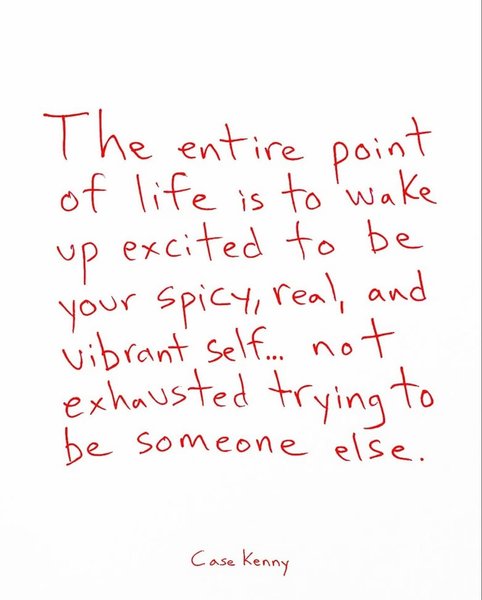 The entire point
of life is to wake
up excited to be
your spicy, real, and
vibrant self... not
exhausted trying to
be someone else.
Case Kenny